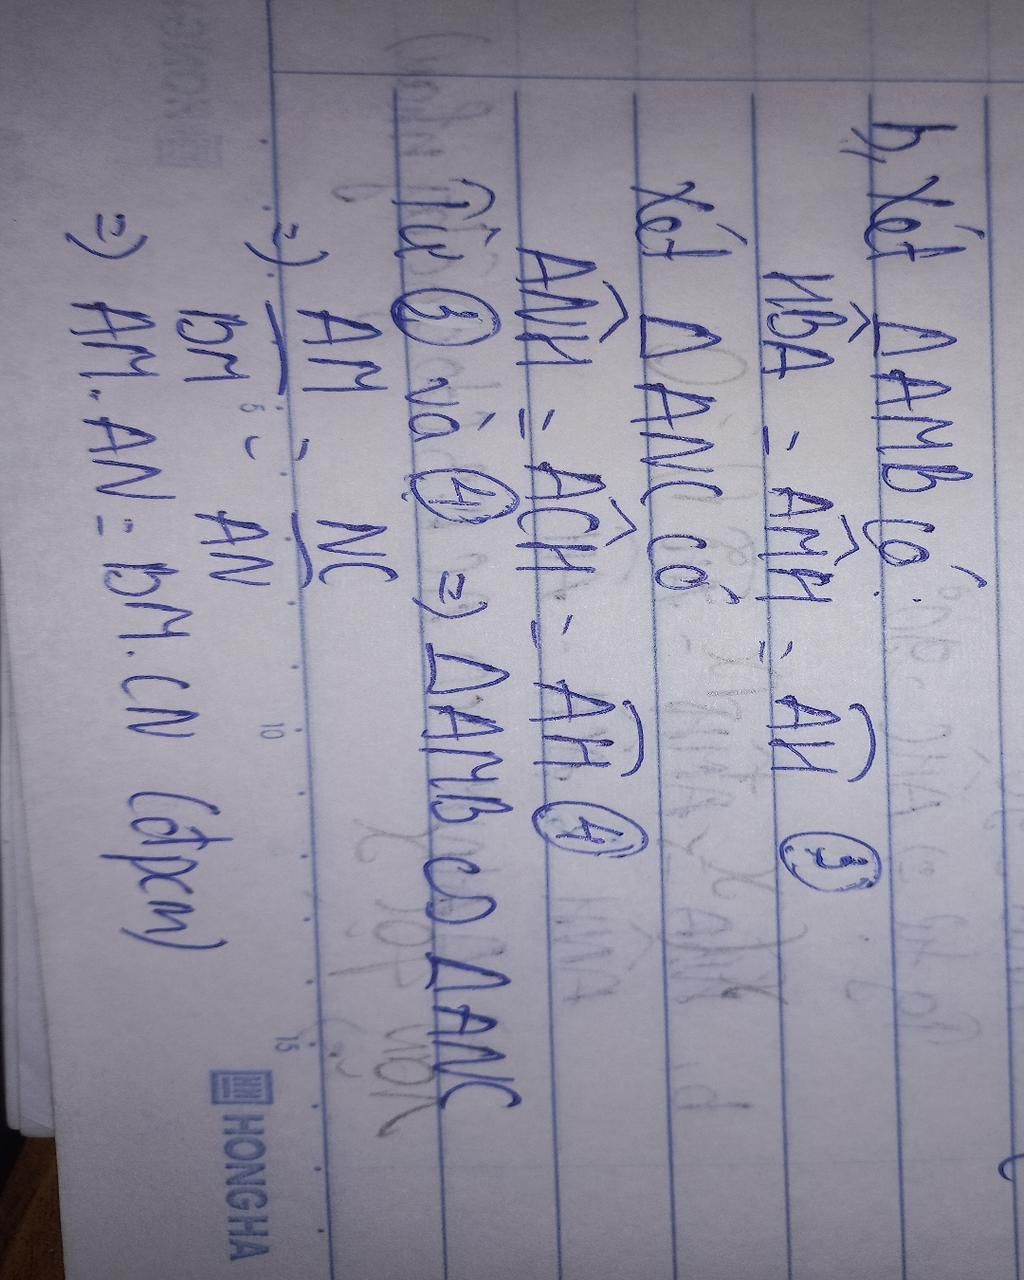 b, Xét Δ AMB có:
HBA = AMH = AH (3)
Xét Δ ANC có
ANH = ACH = AH (4)
Từ (3) và (4) => Δ AMB ∽ Δ ANC
=> AM/BM = NC/AN
=> AM.AN = BM.CN (đpcm)
5 10 15
HONG HA